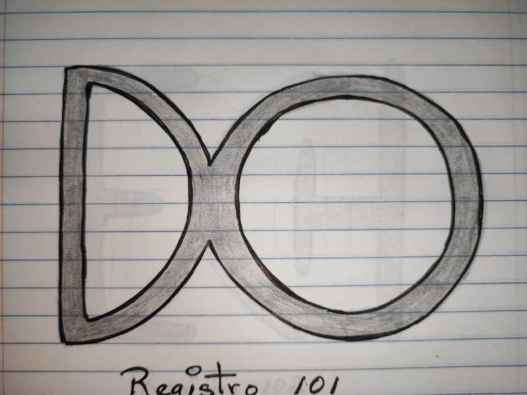 DO
Registro 101